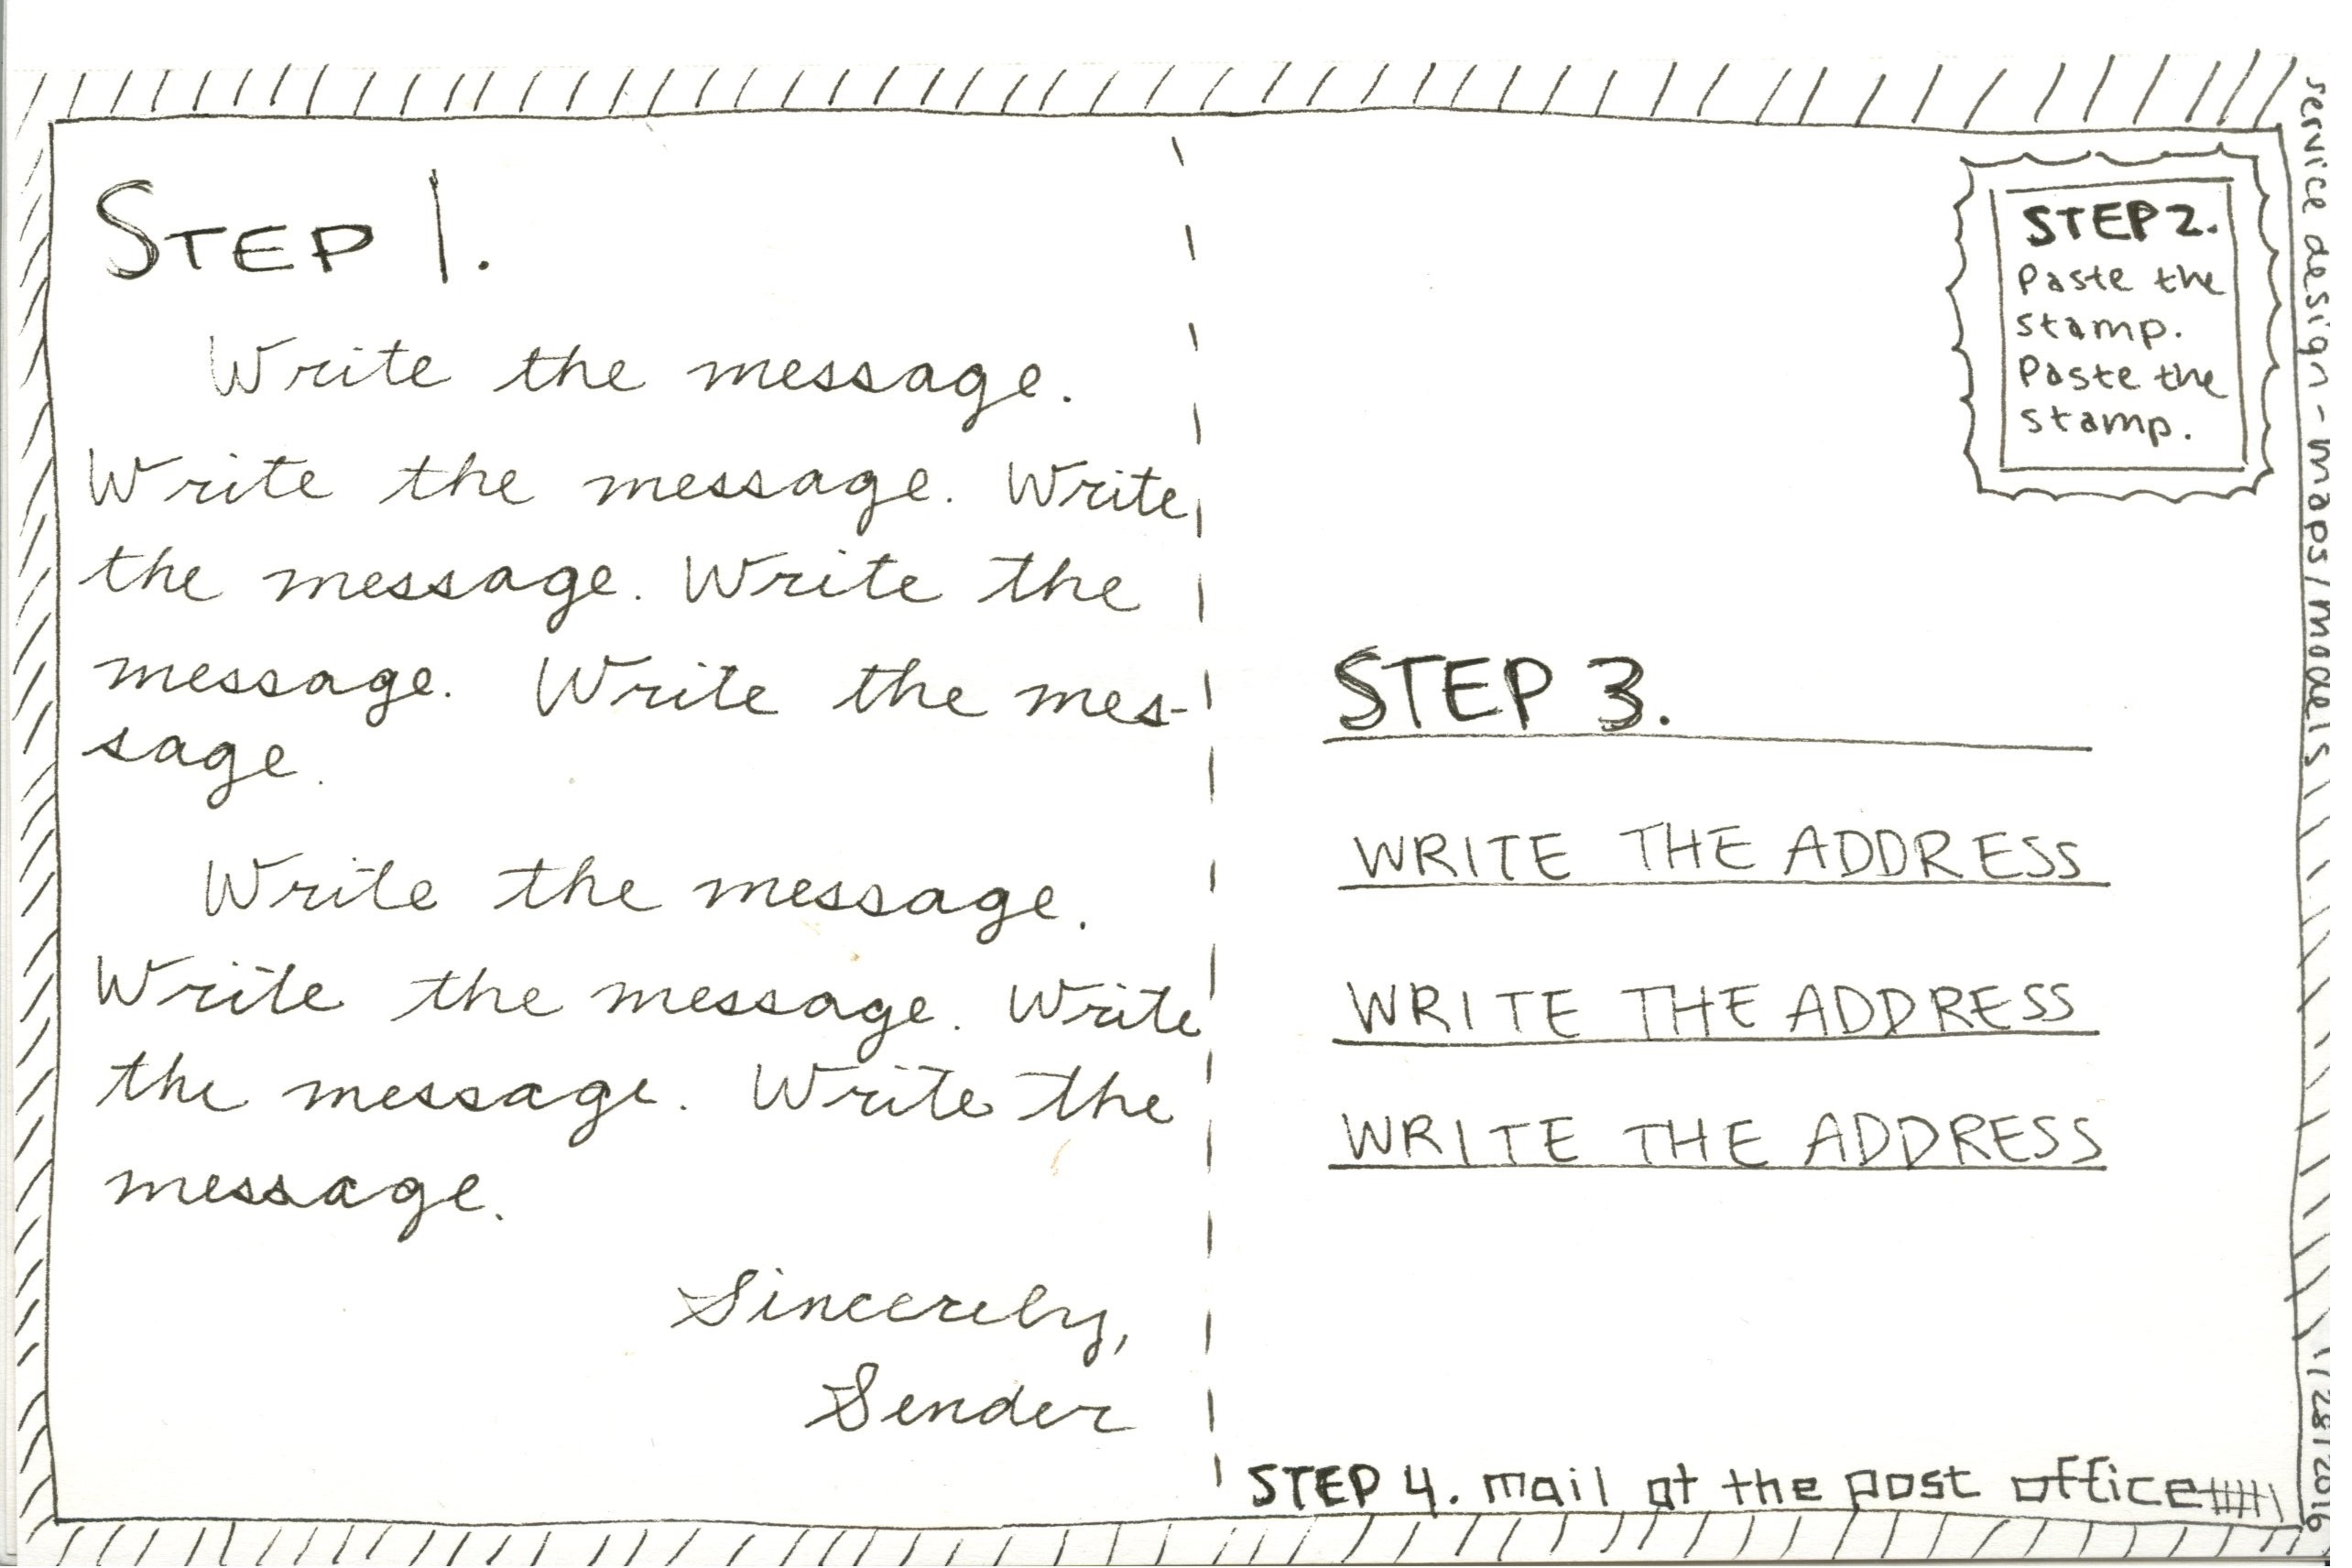 STEP 1.
Write the message.
Write the message. Write
the message. Write the
message. Write the mes-
sage.
Write the message.
Write the message. Write
the message. Write the
message.
Sincerely,
Sender
STEP 2.
Paste the
stamp.
Paste the
stamp.
STEP 3.
WRITE THE ADDRESS
WRITE THE ADDRESS
WRITE THE ADDRESS
STEP 4. mail at the post office
service design - maps/models
1/28/2016